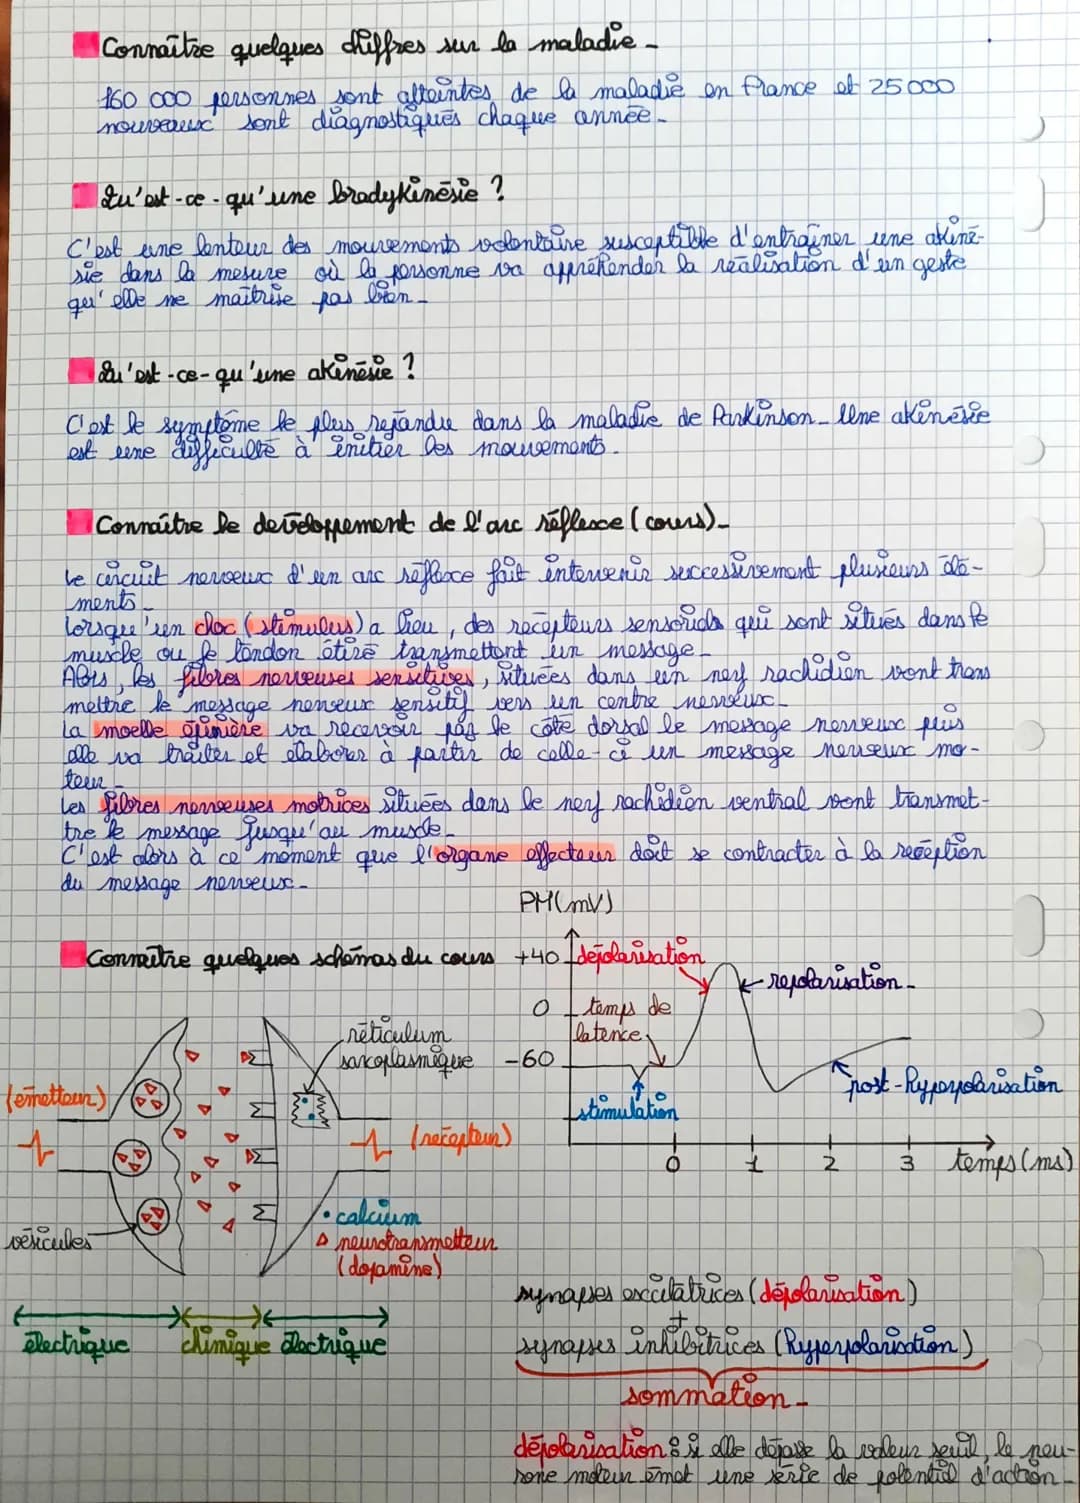 Connaître quelques chiffres sur la maladie -
160 000 personnes sont atteintes de la maladie en France et 25 000
nouveaux sont diagnostiqués chaque année -
Qu'est-ce-qu'une bradykinésie ?
C'est une lenteur des mouvements volontaire susceptible d'entraîner une akiné-
sie dans la mesure où la personne va appréhender la réalisation d'un geste
qu'elle ne maîtrise pas bien -
Qu'est-ce-qu'une akinésie ?
C'est le symptôme le plus répandu dans la maladie de Parkinson - Une akinésie
est une difficulté à initier les mouvements -
Connaître le développement de l'arc réflexe (cours) -
Le circuit nerveux d'un arc réflexe fait intervenir successivement plusieurs élé-
ments -
Lorsqu'un choc (stimulus) a lieu, des récepteurs sensoriels qui sont situés dans le
muscle ou le tendon étiré transmettent un message -
Alors, les fibres nerveuses sensitives, situées dans un nerf rachidien vont trans
mettre le message nerveux sensitif vers un centre nerveux -
La moelle épinière va recevoir par le côté dorsal le message nerveux puis
elle va traiter et élaborer à partir de celle-ci un message nerveux mo-
teur -
Les fibres nerveuses motrices situées dans le nerf rachidien ventral vont transmet-
tre le message jusqu'au muscle -
C'est alors à ce moment que l'organe effecteur doit se contracter à la réception
du message nerveux -
Connaître quelques schémas du cours
PM(mV)
+40
0
-60
dépolarisation
repolarisation -
temps de
latence
stimulation
post-hyperpolarisation
0 1 2 3 temps (ms)
réticulum
sarcoplasmique
(émetteur)
(récepteur)
vésicules
• calcium
neurotransmetteur
(dopamine)
électrique chimique électrique
synapses excitatrices (dépolarisation)
+
synapses inhibitrices (hyperpolarisation)
sommation -
dépolarisation : si elle dépasse la valeur seuil, le neu-
rone moteur émet une série de potentiel d'action -